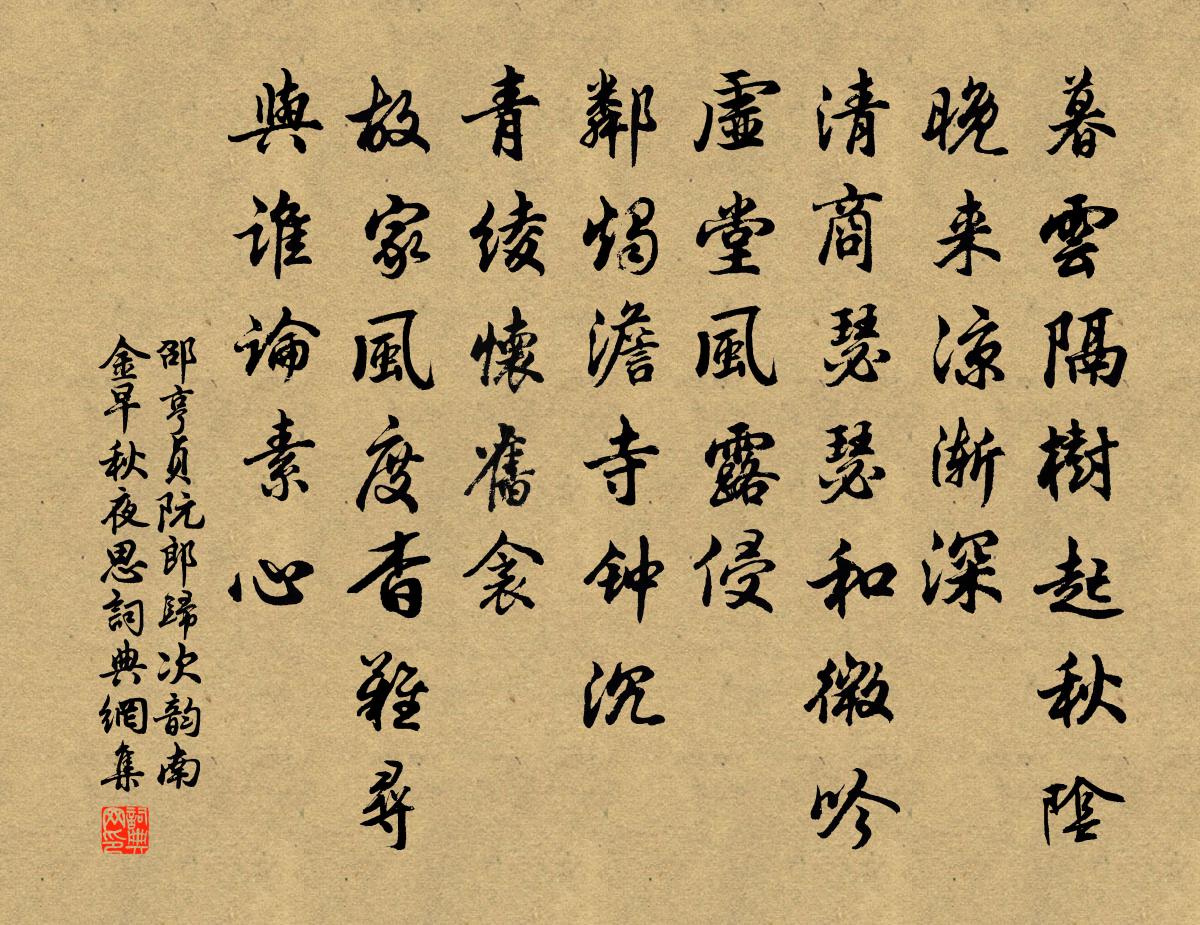 暮雲隔樹起秋陰
晚来涼漸深
清商瑟瑟和微吟
虛堂風露侵
鄰燭澹寺钟沉
青綾懷舊衾
故家風度杳難尋
與誰論素心
邵亨貞阮郎歸次韵南
金早秋夜思詞典網集
詞典
网印